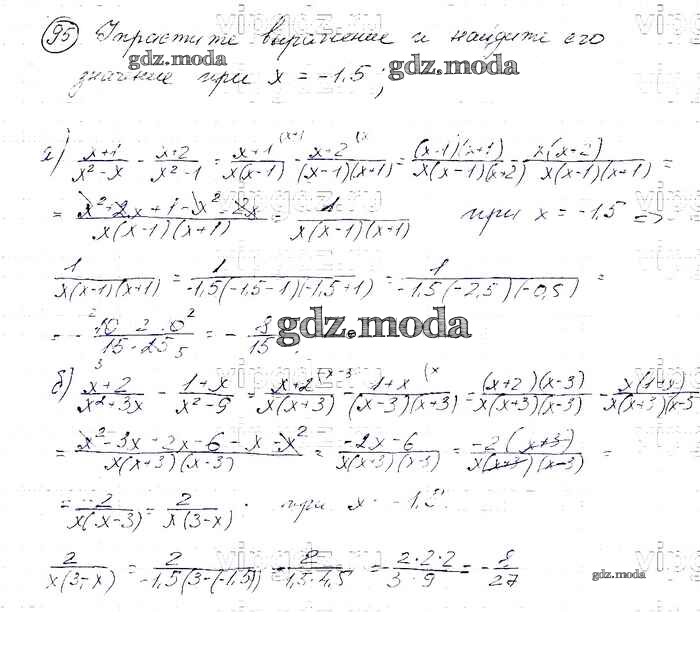 95 Упростите выражение и найдите его
значение при x = -1,5;
gdz.moda
gdz.moda
а) (x+1)/(x²-x) - (x+2)/(x²-1) = (x+1)/(x(x-1)) - (x+2)/((x-1)(x+1)) = (x-1)(x+1)/(x(x-1)(x+2)) - x(x+2)/(x(x-1)(x+1)) =
= (x²+2x+1-x²-2x)/(x(x-1)(x+1)) = 1/(x(x-1)(x+1)) при x = -1,5 =>
1/(x(x-1)(x+1)) = 1/(-1,5(-1,5-1)(-1,5+1)) = 1/(-1,5(-2,5)(-0,5)) =
gdz.moda
б) (x+2)/(x²+3x) - (1+x)/(x²-9) = (x+2)/(x(x+3)) - (1+x)/((x-3)(x+3)) = (x+2)(x-3)/(x(x+3)(x-3)) - x(1+x)/(x(x+3)(x-3
= (x²-3x+2x-6-x-x²)/(x(x+3)(x-3)) = (-2x-6)/(x(x+3)(x-3)) = -2(x+3)/(x(x+3)(x-3)) =
= -2/(x(x-3)) = 2/(x(3-x)). при x
2/(x(3-x)) = 2/(-1,5(3-(-1,5))) = - 2/(1,5·4,5) = - 2·2·2/(3·9) = - 8/27
gdz.moda